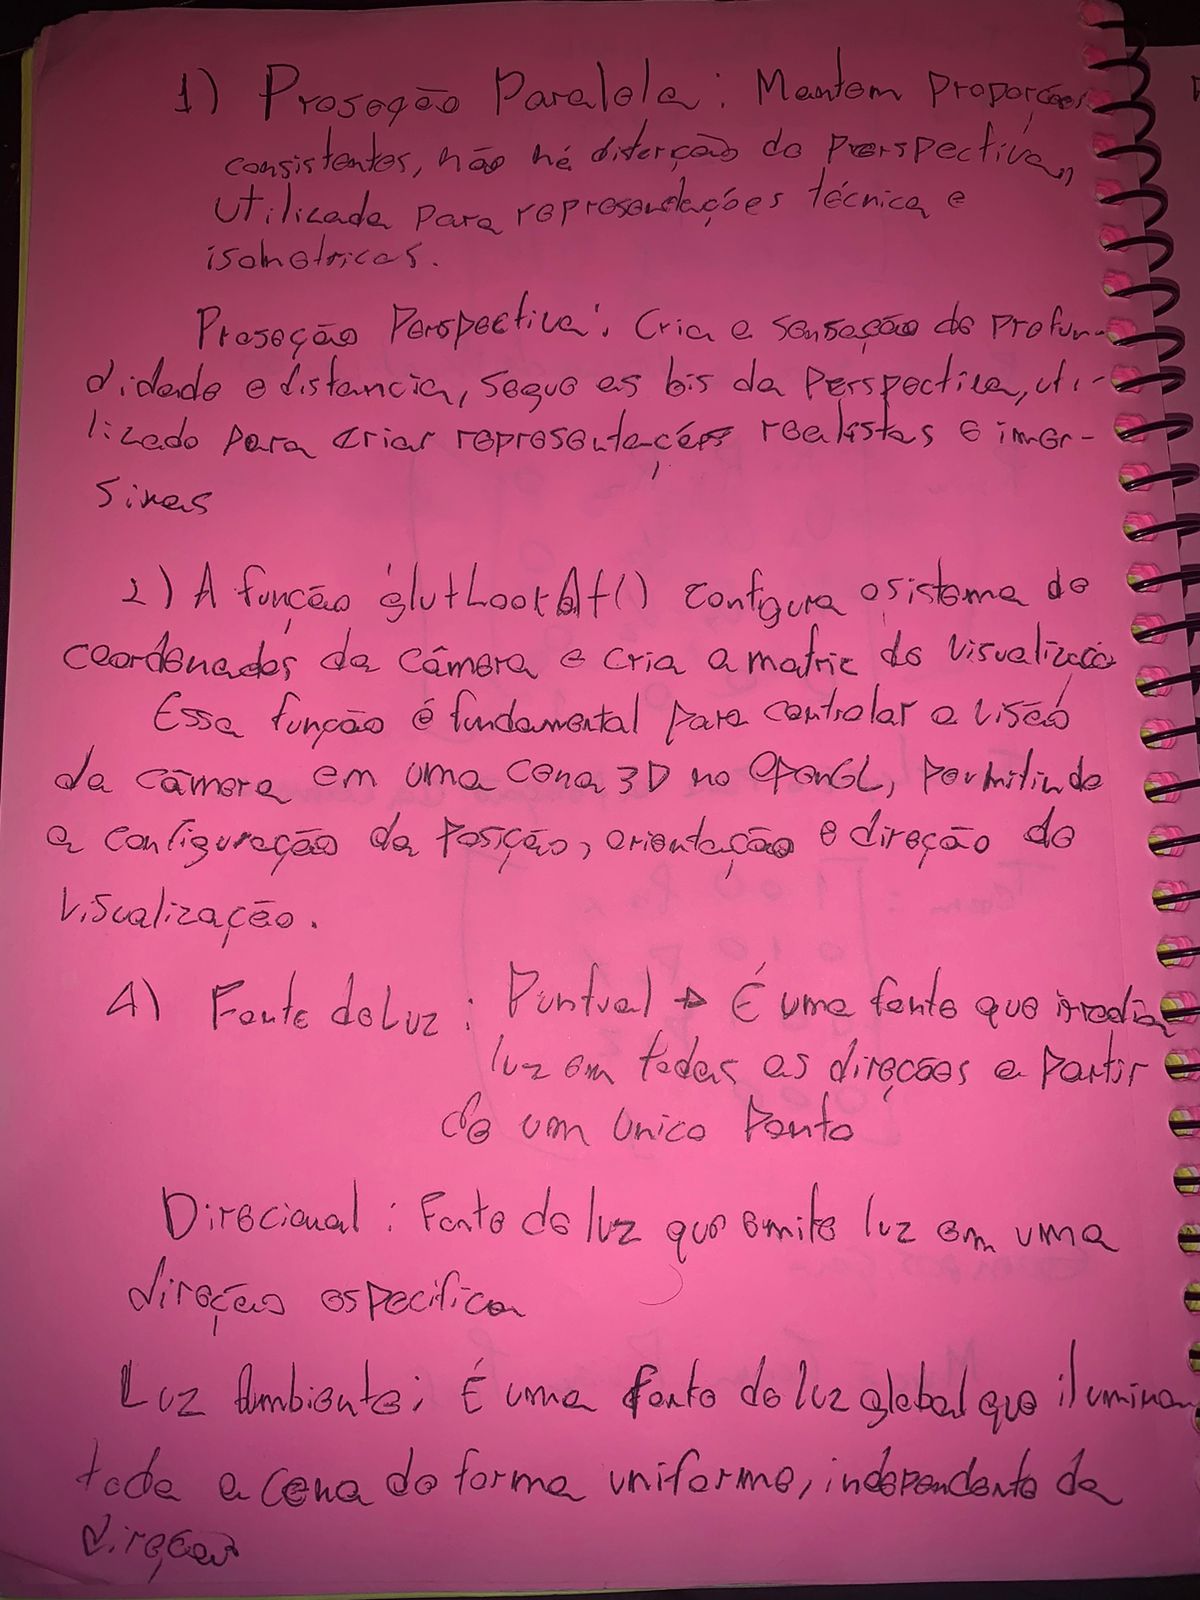 1) Proseção Paralela: Mantem proporções
consistentes, não há disterção de perspectiva,
utilizada para representações técnica e
isometricas.
Proseção Perspectiva: Cria a sensação de profun-
didade e distancia, segue as bis da perspectiva, uti-
lizado para criar representações realistas e imer-
sivas
2) A função glutLookAt() configura o sistema de
coordenadas da câmera e cria a matriz de visualização
Essa função é fundamental para controlar a visão
da câmera em uma cena 3D no OpenGL, permitindo
a configuração da posição, orientação e direção de
visualização.
4) Fonte de Luz: Puntual → É uma fonte que irradia
luz em todas as direções a partir
de um único ponto
Direcional: Fonte de luz que emite luz em uma
direção especifica
Luz Ambiente: É uma fonte de luz global que ilumina
toda a cena de forma uniforme, independente da
direção